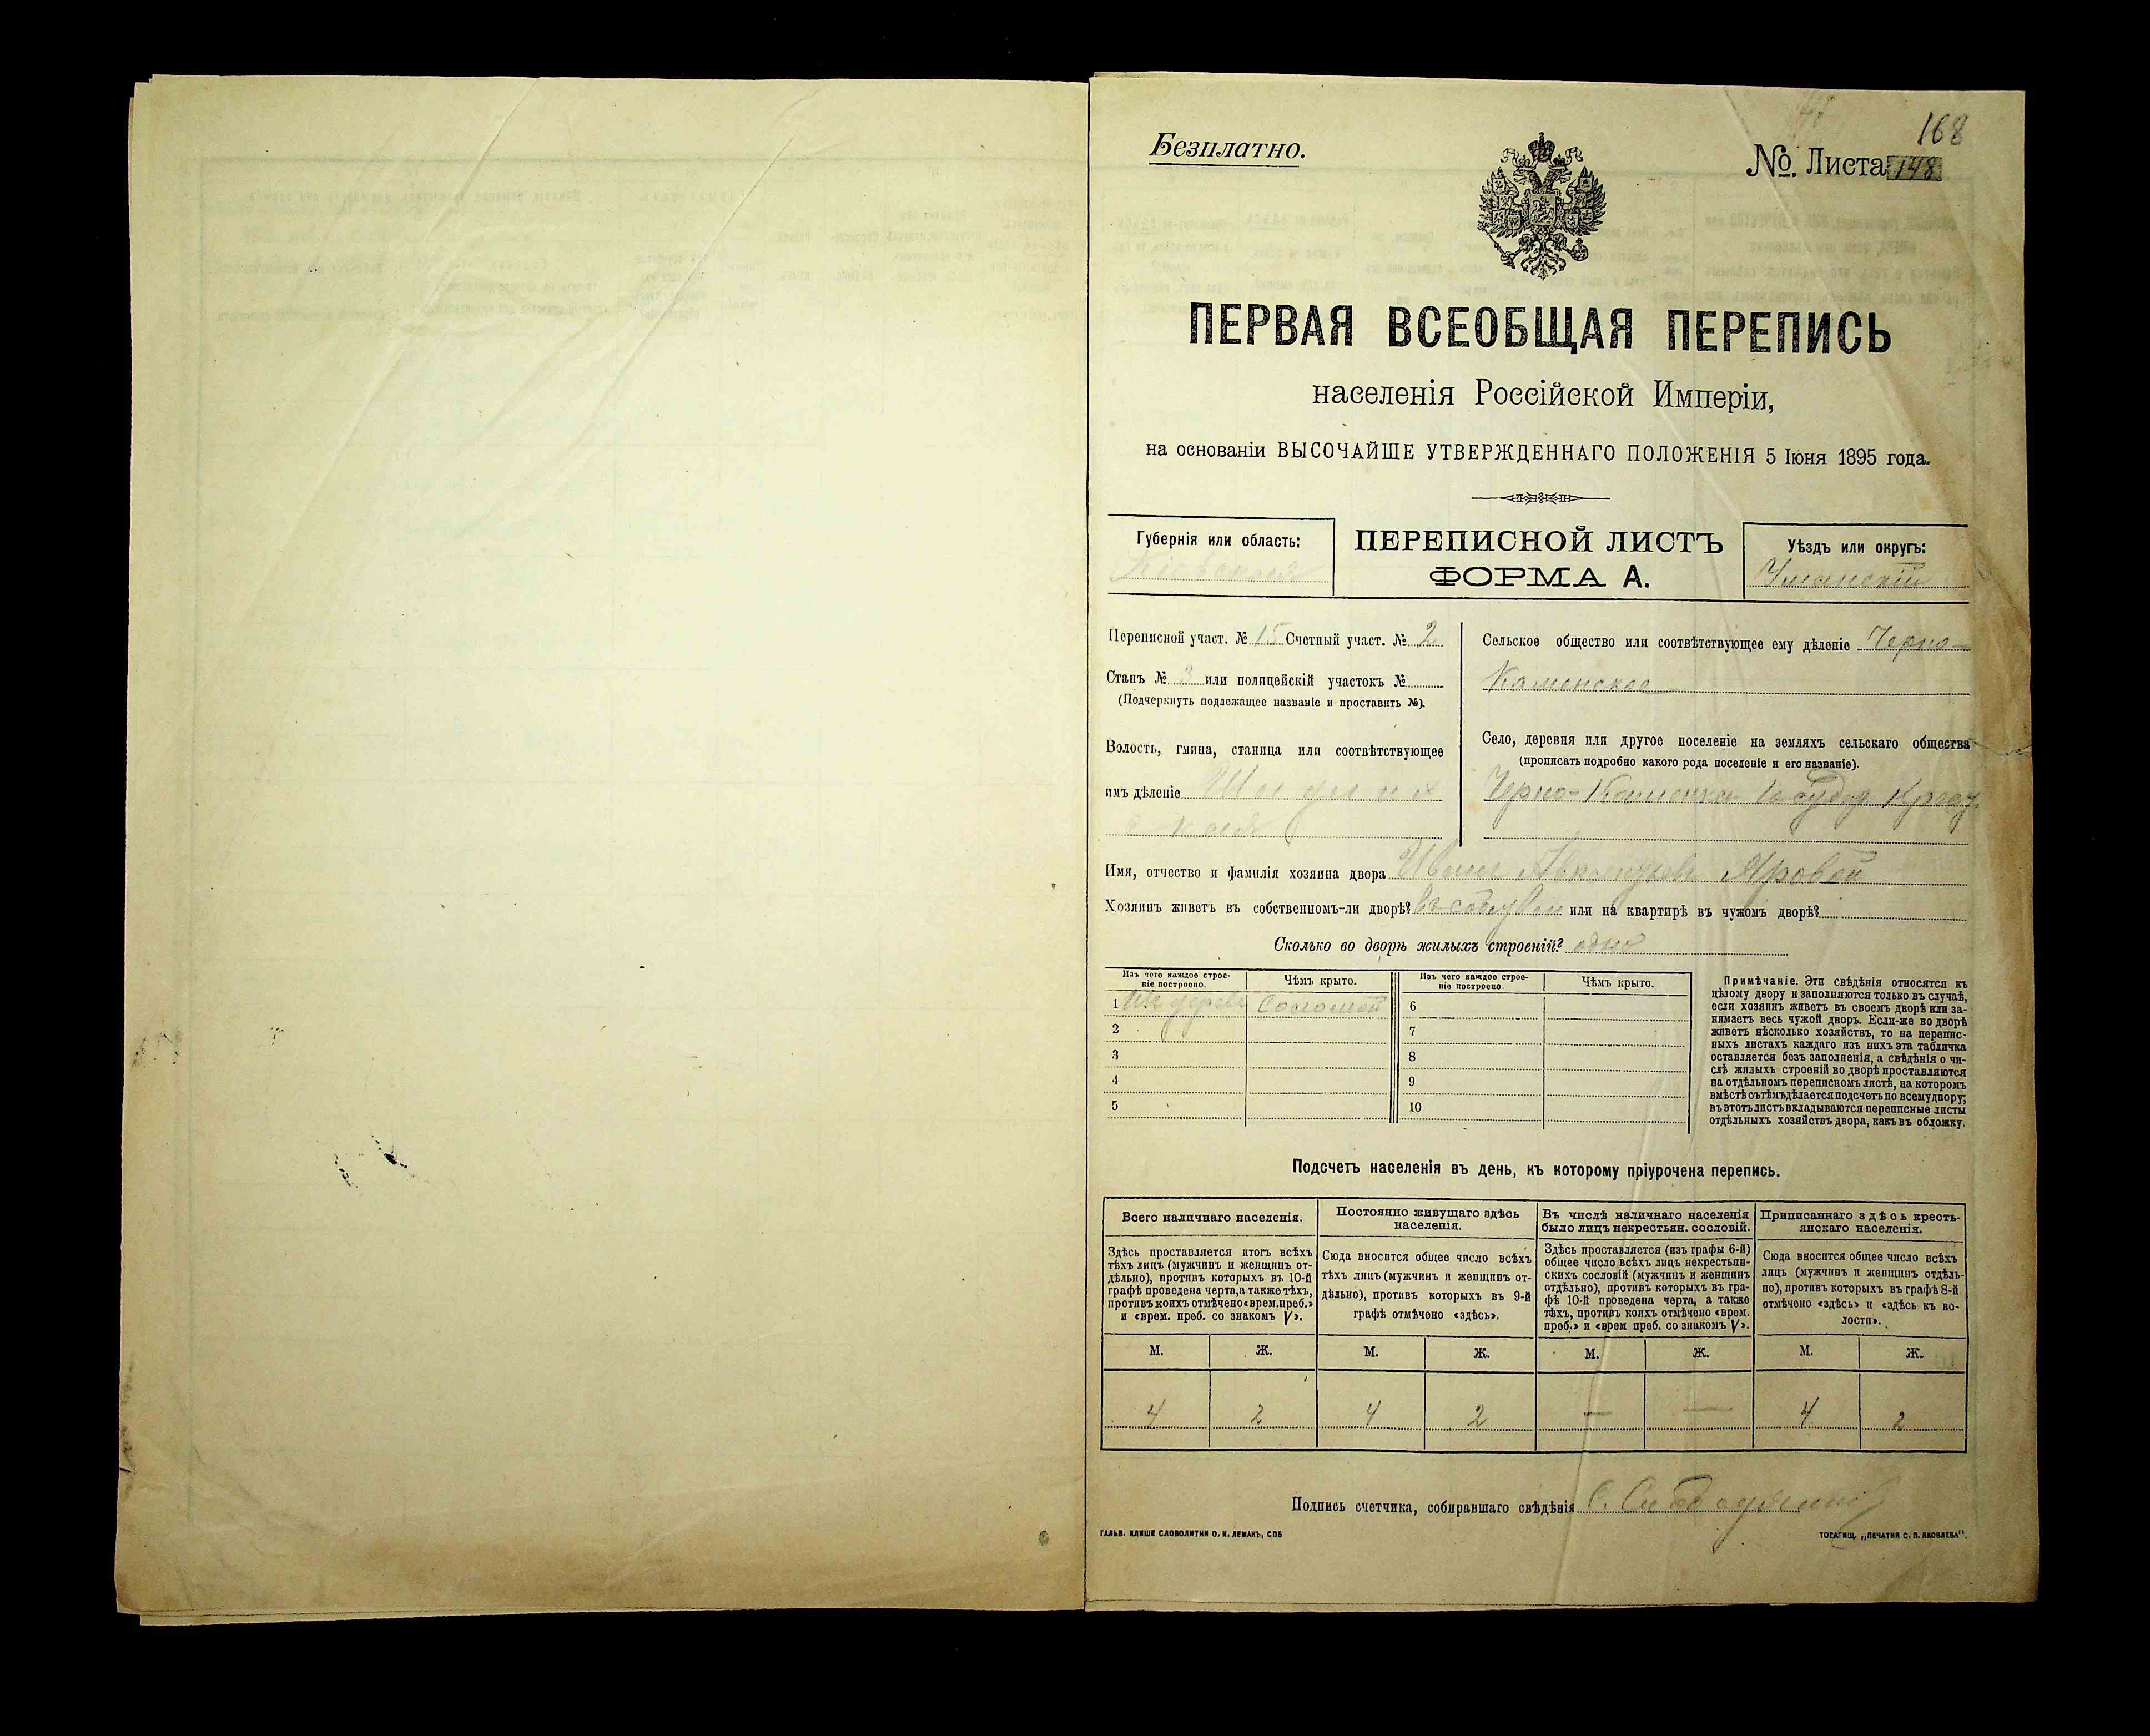 168
Безплатно.
№. Листа 148
ПЕРВАЯ ВСЕОБЩАЯ ПЕРЕПИСЬ
населенія Россійской Имперіи,
на основаніи ВЫСОЧАЙШЕ УТВЕРЖДЕННАГО ПОЛОЖЕНІЯ 5 Іюня 1895 года.
Губернія или область:
Кіевская
ПЕРЕПИСНОЙ ЛИСТЪ
ФОРМА А.
Уѣздъ или округъ:
Уманскій
Переписной участ. № 15 Счетный участ. № 2
Станъ № 3 или полицейскій участокъ №
(Подчеркнуть подлежащее названіе и проставить №).
Волость, гмина, станица или соотвѣтствующее
имъ дѣленіе
Сельское общество или соотвѣтствующее ему дѣленіе Черно-
Каменское
Село, деревня или другое поселеніе на земляхъ сельскаго общества
(прописать подробно какого рода поселеніе и его названіе).
Черно-Каменка
Имя, отчество и фамилія хозяина двора Иванъ Яровой
Хозяинъ живетъ въ собственномъ-ли дворѣ? въ или на квартирѣ въ чужомъ дворѣ?
Сколько во дворѣ жилыхъ строеній? одно
Изъ чего каждое строе-
ніе построено.
Чѣмъ крыто.
Изъ чего каждое строе-
ніе построено.
Чѣмъ крыто.
1 Изъ дерева Соломой
6
2
7
3
8
4
9
5
10
Примѣчаніе. Эти свѣдѣнія относятся къ
цѣлому двору и заполняются только въ случаѣ,
если хозяинъ живетъ въ своемъ дворѣ или за-
нимаетъ весь чужой дворъ. Если-же во дворѣ
живетъ нѣсколько хозяйствъ, то на перепис-
ныхъ листахъ каждаго изъ нихъ эта табличка
оставляется безъ заполненія, а свѣдѣнія о чи-
слѣ жилыхъ строеній во дворѣ проставляются
на отдѣльномъ переписномъ листѣ, на которомъ
вмѣстѣ съ тѣмъ дѣлается подсчетъ по всему двору;
въ этотъ листъ вкладываются переписные листы
отдѣльныхъ хозяйствъ двора, какъ въ обложку.
Подсчетъ населенія въ день, къ которому пріурочена перепись.
Всего наличнаго населенія.
Здѣсь проставляется итогъ всѣхъ
тѣхъ лицъ (мужчинъ и женщинъ от-
дѣльно), противъ которыхъ въ 10-й
графѣ проведена черта, а также тѣхъ,
противъ коихъ отмѣчено «врем. преб.»
и «врем. преб. со знакомъ V».
Постоянно живущаго здѣсь
населенія.
Сюда вносится общее число всѣхъ
тѣхъ лицъ (мужчинъ и женщинъ от-
дѣльно), противъ которыхъ въ 9-й
графѣ отмѣчено «здѣсь».
Въ числѣ наличнаго населенія
было лицъ некрестьян. сословій.
Здѣсь проставляется (изъ графы 6-й)
общее число всѣхъ лицъ некрестьян-
скихъ сословій (мужчинъ и женщинъ
отдѣльно), противъ которыхъ въ гра-
фѣ 10-й проведена черта, а также
тѣхъ, противъ коихъ отмѣчено «врем.
преб.» и «врем преб. со знакомъ V».
Приписаннаго здѣсь кресть-
янскаго населенія.
Сюда вносится общее число всѣхъ
лицъ (мужчинъ и женщинъ отдѣль-
но), противъ которыхъ въ графѣ 8-й
отмѣчено «здѣсь» и «здѣсь къ во-
лости».
М. Ж. М. Ж. М. Ж. М. Ж.
4 2 4 2 — — 4 2
Подпись счетчика, собиравшаго свѣдѣнія
ГАЛЬВ. КЛИШЕ СЛОВОЛИТНИ О. И. ЛЕМАНЪ, СПБ
ТОВАРИЩ. „ПЕЧАТНЯ С. П. ЯКОВЛЕВА".